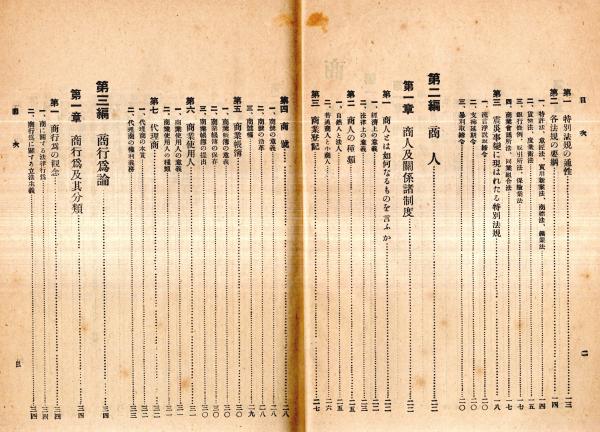 目次
第一 特別法規の通性……一三
第二 各法規の要綱……一四
一、特許法、意匠法、實用新案法、商標法、鑛業法……一四
二、貨幣法、度量衡法……一五
三、銀行條例、取引所法、保險業法……一七
四、商業會議所法、同業組合法……一七
第三 震災事變に現はれたる特別法規……一八
一、流言浮說取締令……二〇
二、支拂延期令……二〇
三、暴利取締令……二〇
第二編 商人……二二
第一章 商人及關係諸制度……二二
第一 商人とは如何なるものを言ふか……二二
一、經濟上の意義……二二
二、法律上の意義……二三
第二 商人の種類……二五
一、自然人と法人……二五
二、普通商人と小商人……二六
第三 商業登記……二七
第四 商號……二八
一、商號の意義……二八
二、商號の沿革……二八
三、商號權……二九
第五 商業帳簿……三〇
一、商業帳簿の意義……三〇
二、商業帳簿の保存……三〇
三、商業帳簿の提出……三〇
第六 商業使用人……三一
一、商業使用人の意義……三一
二、商業使用人の種類……三一
第七 代理商……三二
一、代理商の本質……三二
二、代理商の權利義務……三三
第三編 商行爲論……三四
第一章 商行爲及其分類……三四
第一 商行爲の觀念……三四
一、商に關する法律行爲……三四
二、商行爲に關する立法主義……三四
目次
三